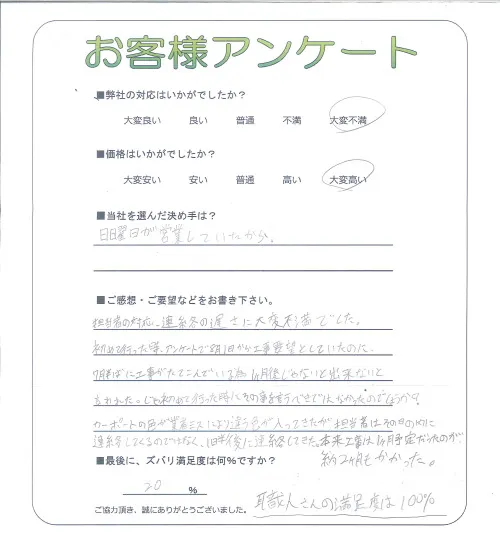 お客様アンケート
■弊社の対応はいかがでしたか？
大変良い 良い 普通 不満 大変不満
■価格はいかがでしたか？
大変安い 安い 普通 高い 大変高い
■当社を選んだ決め手は？
日曜日が営業していたから。
■ご感想・ご要望などをお書き下さい。
担当者の対応、連絡等の遅さに大変不満でした。
初めて行った際、アンケートで8月1日から工事要望としていたのに、
7月半ばに工事がたてこんでいる為1ヶ月後じゃないと出来ないと
言われた。じゃあ初めて行った時にその事を言うべきではなかったのでしょうか？
カーポートの色が業者ミスにより違う色が入ってきたが担当者はその日の内に
連絡してくるのではなく、1日半後に連絡してきた。本来工事は1ヶ月予定だったのが
約2ヶ月もかかった。
■最後に、ズバリ満足度は何%ですか？
20 %
職人さんの満足度は100%
ご協力頂き、誠にありがとうございました。